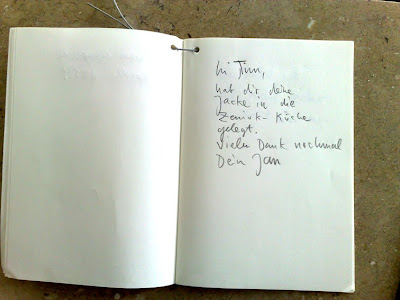 hi Timm,
hab dir deine
Jacke in die
Küche
gelegt.
Vielen Dank nochmal
Dein Jan